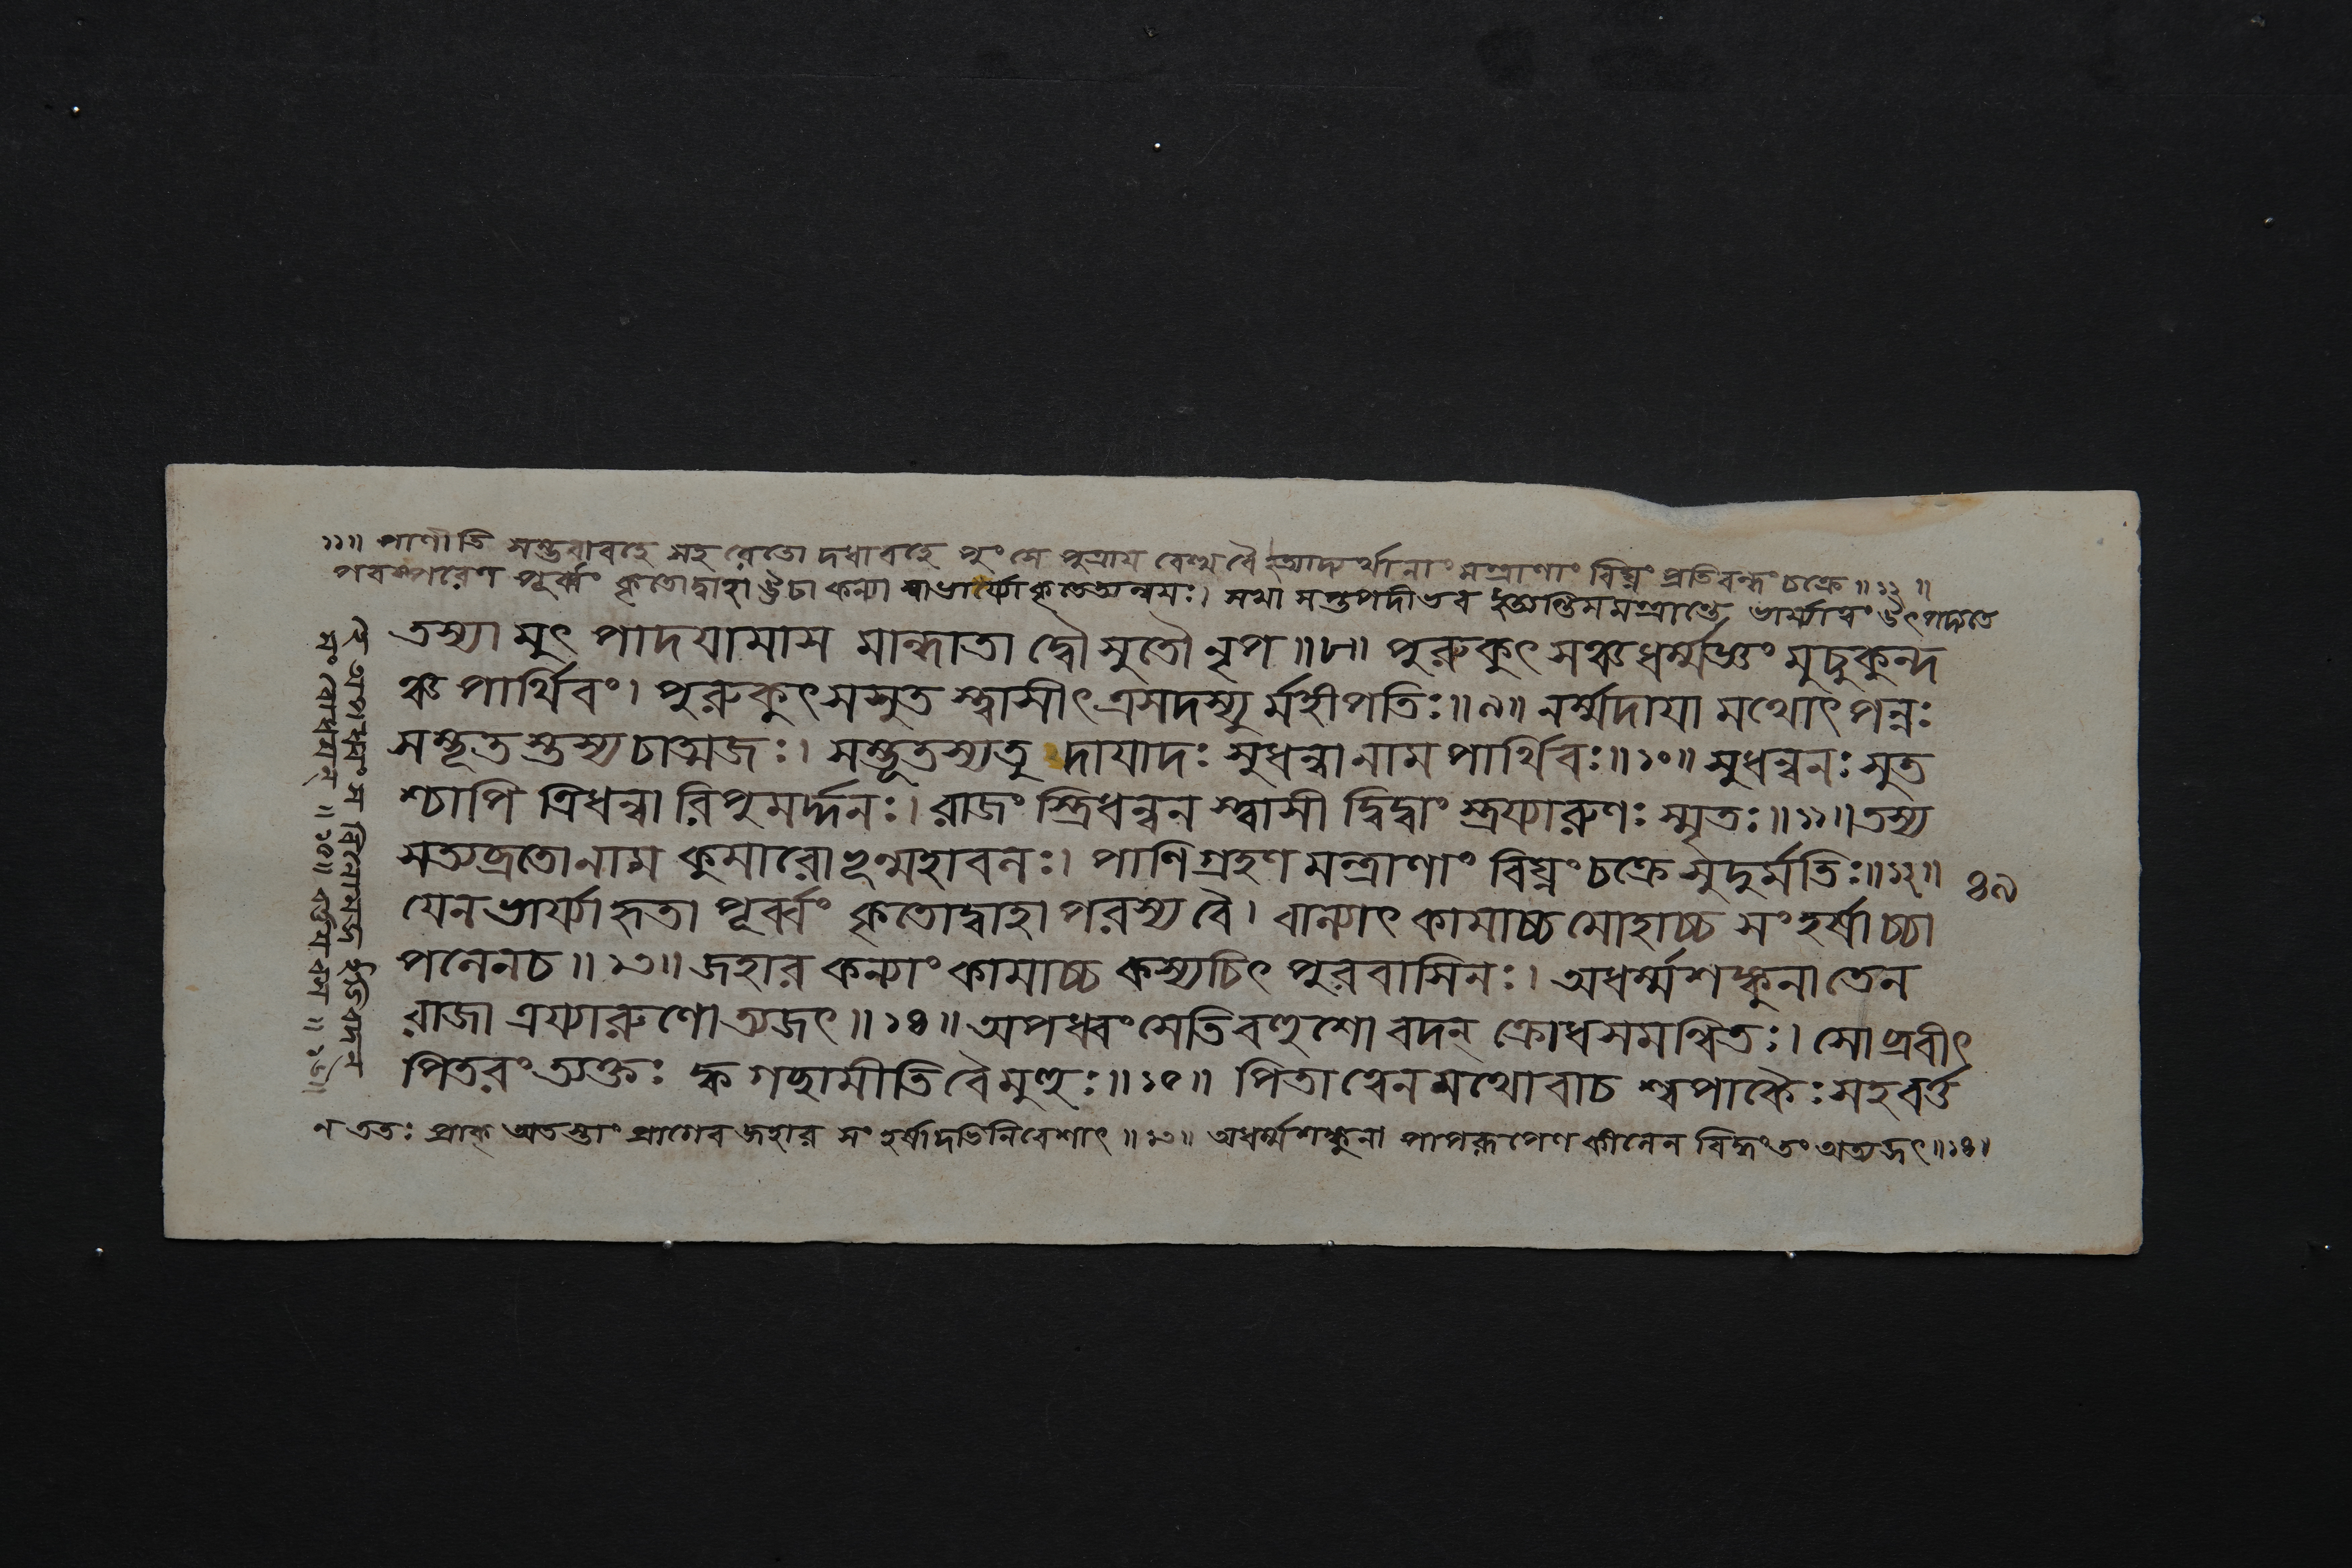 ১১॥ পাণীতি সম্ভবাবহৈ সহ রেতো দধাবহৈ পুংসে পুত্রায় বেত্তবৈ ইত্যাদ্যর্থানাং মন্ত্রাণাং বিঘ্নং প্রতিবন্ধং চক্রে॥১২॥
পরম্পরেণ পূর্ব্বং কৃতোদ্বাহা ঊঢা কন্যা সাভার্য্যা কৃতেত্যন্বয়ঃ। সখা সপ্তপদীভব ইত্যন্তিমমন্ত্রান্তে ভার্য্যাত্বং উৎপদ্যতে
তস্যামুৎপাদয়ামাস মান্ধাতা দ্বৌ সুতৌ নৃপ॥৮॥ পুরুকুৎসঞ্চধর্ম্মজ্ঞং মুচুকুন্দ
ঞ্চ পার্থিবং। পুরুকুৎসসুত স্ত্বাসীৎ ত্রসদস্যু র্মহীপতিঃ॥৯॥ নর্ম্মদায়া মথোৎপন্নঃ
সম্ভূত স্তস্যচাত্মজঃ। সম্ভূতস্যতু দায়াদঃ সুধন্বা নাম পার্থিবঃ॥১০॥ সুধন্বনঃ সুত
শ্চাপি ত্রিধন্বা রিপুমর্দ্দনঃ। রাজ্ঞ স্ত্রিধন্বন স্ত্বাসী দ্বিদ্বাং স্ত্রয্যারুণঃ স্মৃতঃ॥১১॥ তস্য
সত্যব্রতোনাম কুমারোঽভূন্মহাবলঃ। পাণিগ্রহণ মন্ত্রাণাং বিঘ্নং চক্রে সুদুর্মতিঃ॥১২॥
৪৯
যেন ভার্য্যা হৃতা পূর্ব্বং কৃতোদ্বাহা পরস্য বৈ। বাল্যাৎ কামাচ্চ মোহাচ্চ সংহর্ষাচ্চা
পলেনচ॥১৩॥ জহার কন্যাং কামাচ্চ কস্যচিৎ পুরবাসিনঃ। অধর্ম্মশঙ্কুনা তেন
রাজা ত্রয্যারুণোঽত্যজৎ॥১৪॥ অপধ্বংসেতি বহুশো বদন্ ক্রোধসমন্বিতঃ। সোঽব্রবীৎ
পিতরং ত্যক্তঃ ক্ব গচ্ছামীতি বৈ মুহুঃ॥১৫॥ পিতা ত্বেন মথোবাচ শ্বপাকৈঃ সহ বর্ত্ত
ন ততঃ প্রাক্ অতস্তাং প্রাগেব জহার সংহর্ষাদভিনিবেশাৎ॥১৩॥ অধর্ম্মশঙ্কুনা পাপরূপেণ কীলেন বিদ্ধং তং অত্যজৎ॥১৪॥